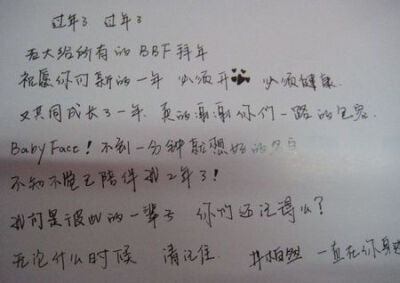 过年了 过年了
老大给所有的BBF拜年
祝愿你们新的一年 必须开 必须健康.
又共同成长了一年. 真的谢谢你们一路的包容.
BabyFace! 不到一分钟就想好的名
不知不觉已陪伴我2年了!
我可是说的一辈子 你们还记得么?
无论什么时候 请记住. 井柏然 一直在你身